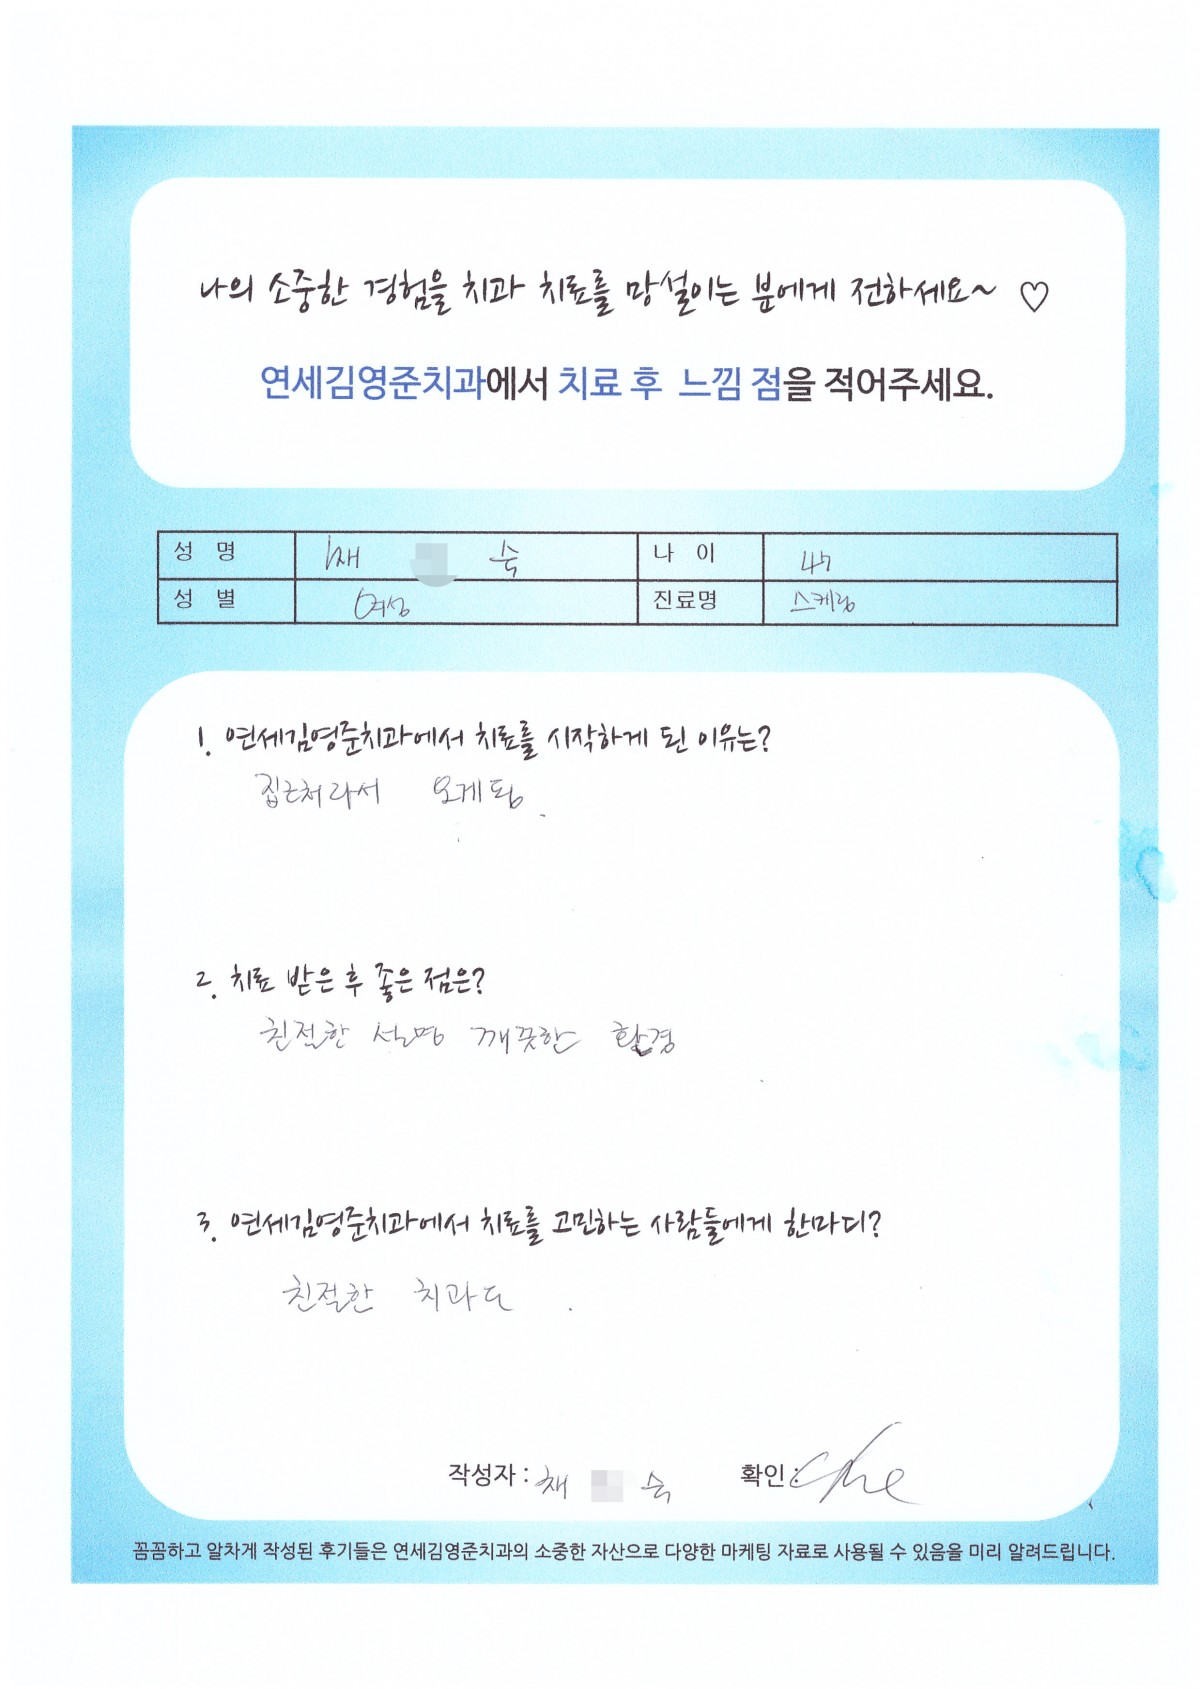 나의 소중한 경험을 치과 치료를 망설이는 분에게 전하세요~ ♡
연세김영준치과에서 치료 후 느낌 점을 적어주세요.
성 명 채 숙 나 이 47
성 별 여성 진료명 스케링
1. 연세김영준치과에서 치료를 시작하게 된 이유는?
집근처라서 오게됨.
2. 치료 받은 후 좋은 점은?
친절한 설명 깨끗한 환경
3. 연세김영준치과에서 치료를 고민하는 사람들에게 한마디?
친절한 치과 .
작성자 : 채 숙 확인 : che
꼼꼼하고 알차게 작성된 후기들은 연세김영준치과의 소중한 자산으로 다양한 마케팅 자료로 사용될 수 있음을 미리 알려드립니다.